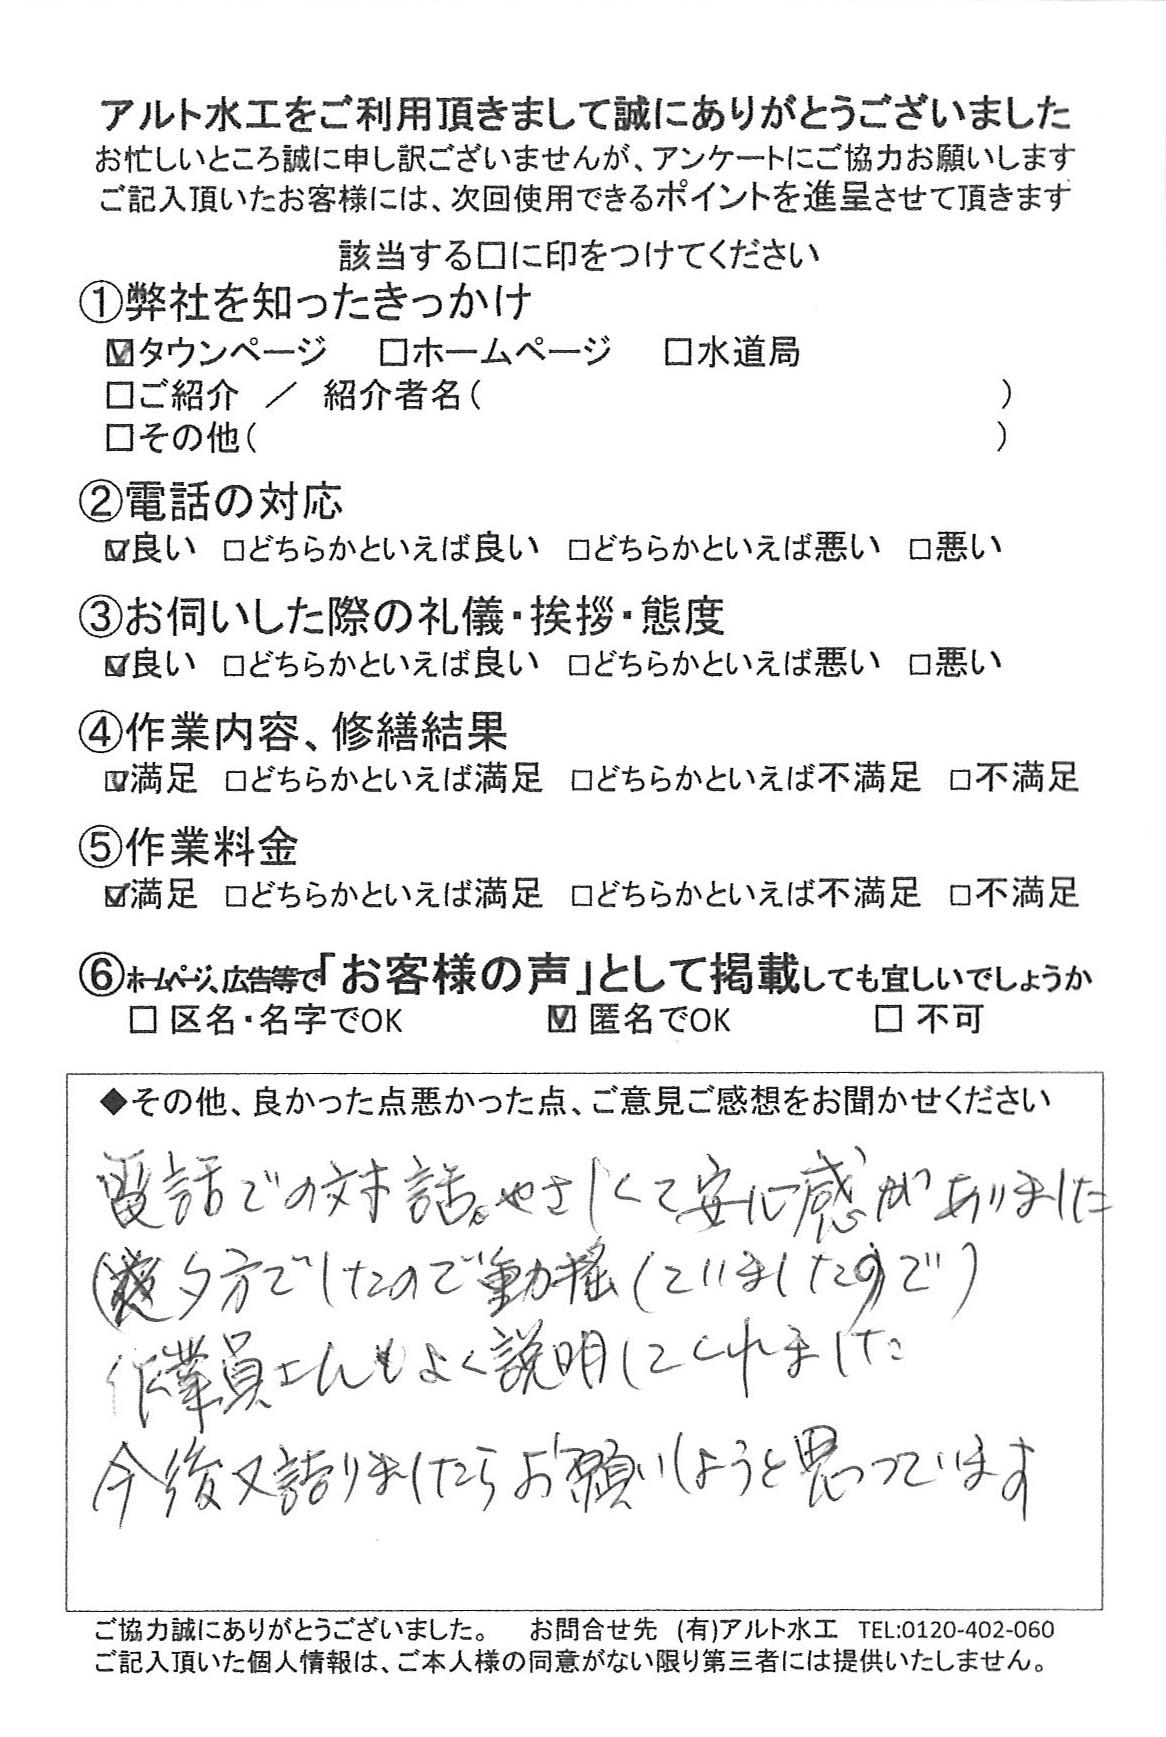 アルト水工をご利用頂きまして誠にありがとうございました
お忙しいところ誠に申し訳ございませんが、アンケートにご協力お願いします
ご記入頂いたお客様には、次回使用できるポイントを進呈させて頂きます
該当する□に印をつけてください
①弊社を知ったきっかけ
☑タウンページ □ホームページ □水道局
□ご紹介 ／ 紹介者名( )
□その他( )
②電話の対応
☑良い □どちらかといえば良い □どちらかといえば悪い □悪い
③お伺いした際の礼儀・挨拶・態度
☑良い □どちらかといえば良い □どちらかといえば悪い □悪い
④作業内容、修繕結果
☑満足 □どちらかといえば満足 □どちらかといえば不満足 □不満足
⑤作業料金
☑満足 □どちらかといえば満足 □どちらかといえば不満足 □不満足
⑥ホームページ、広告等で「お客様の声」として掲載しても宜しいでしょうか
□ 区名・名字でOK ☑ 匿名でOK □ 不可
◆その他、良かった点悪かった点、ご意見ご感想をお聞かせください
電話での対話。やさしくて安心感がありました
(夕方でしたので動揺していましたので)
作業員さんもよく説明してくれました
今後又詰りましたらお願いしようと思っています
ご協力誠にありがとうございました。 お問合せ先 (有)アルト水工 TEL:0120-402-060
ご記入頂いた個人情報は、ご本人様の同意がない限り第三者には提供いたしません。